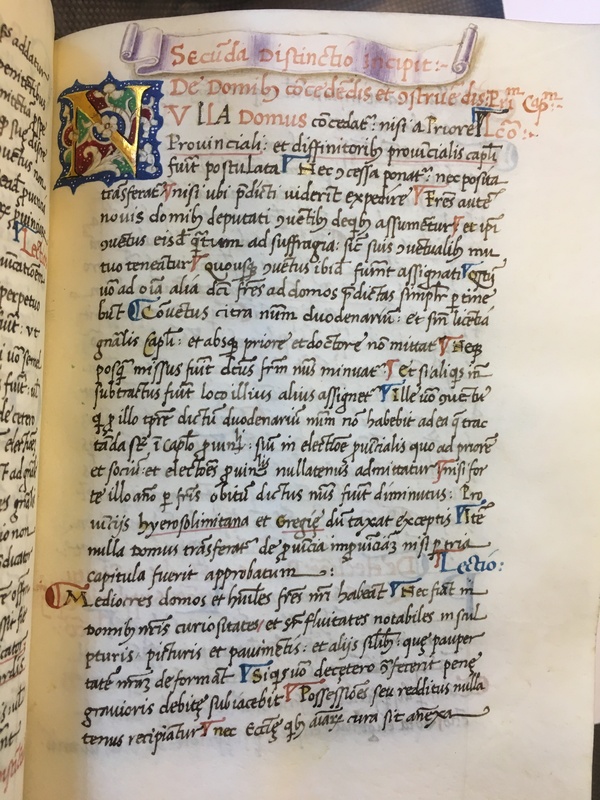 Secūda Distinctio incipit:-
De Domibꝫ cōcedēdis et ꝯstruēdis: Prīm Capm:-
VLLA Domus cōcedat᷑: nisi a Priore Lcō:-
Provinciali: et diffinitoribꝫ provīcialis capłi
fuīt postulata Nec ꝯcessa ponat᷑: nec posita
trāsferat᷑ nisi ubi p̄dicti viderīt expedire Frēs autē
novis domibꝫ deputati ꝯuētibꝫ de qbꝫ assumētur et ipi
ꝯuētus eisd̄ q̄tum ad suffragia: sīc suis ꝯuētualibꝫ mu
tuo teneātur quousqꝫ ꝯuētus ibid̄ fuīnt assignati
uō ad oīa alia dc̄i frēs ad domos p̄dictas simplr ptine
būt Cōuētus citra nūm duodenariū: et sin licētia
gnālis Capłi: et absqꝫ priore et doctore nō mittat᷑ Neqꝫ
posqꝫ missus fuīt dc̄us frm nūs minuat᷑ Et si aliqs īn
subtractus fuīt loco illius alius assignet᷑ Ille uō ꝯuēt
q̄ p illo tpre dictū duodenariū nūm nō habebit ad ea q̄ trac
tāda sūt ī Caplo ꝓuinli: siu in electiōe ꝓuīcialis quo ad priorē
et sociū: et electōes ꝓuinlis nullatenus admittatur nisi for
te illo año p fris obitū dictus nūs fuīt diminutus: Pro
uincijs hyerosolimitana et Gregię dūtaxat exceptis Itē
nulla domus trāsferat᷑ de ꝓuicia ī ꝓuinciā nisi p tria
capitula fuerit approbatum Lectio:
Mediocres domos et hūiles frēs nri habeāt Nec fiāt in
domibꝫ nris curiositates et suꝑfluitates notabiles in scul
pturis picturis et pauimētis: et alijs silibꝫ: quę pauper
tatē nrāȝ deformāt Siqs uō decętero ꝯ̄fecerit penę
gravioris debitę subiacebit Possessiōes seu redditus nulla
tenus recipiātur nec Eccłię qbꝫ aīarꝫ cura sit anēxa